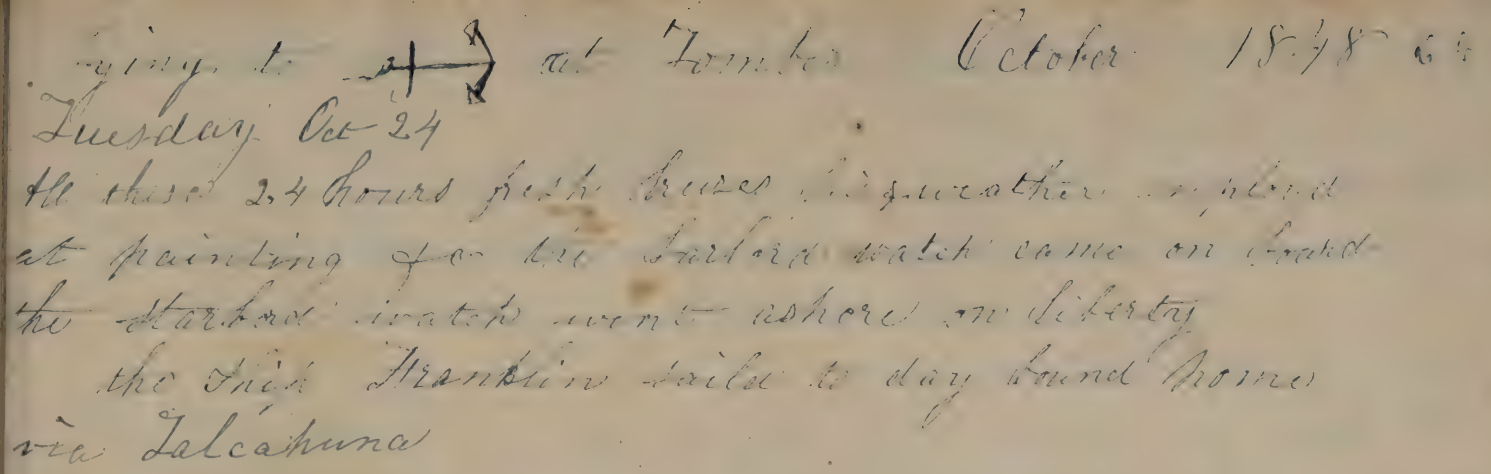 Lying to at Tombes October 1848
Tuesday Oct 24
All these 24 hours fresh breezes weather employed
at painting &c the larbord watch came on board
the starbord watch went ashore on liberty
the Ship Franklin saild to day bound home
via Talcahuna